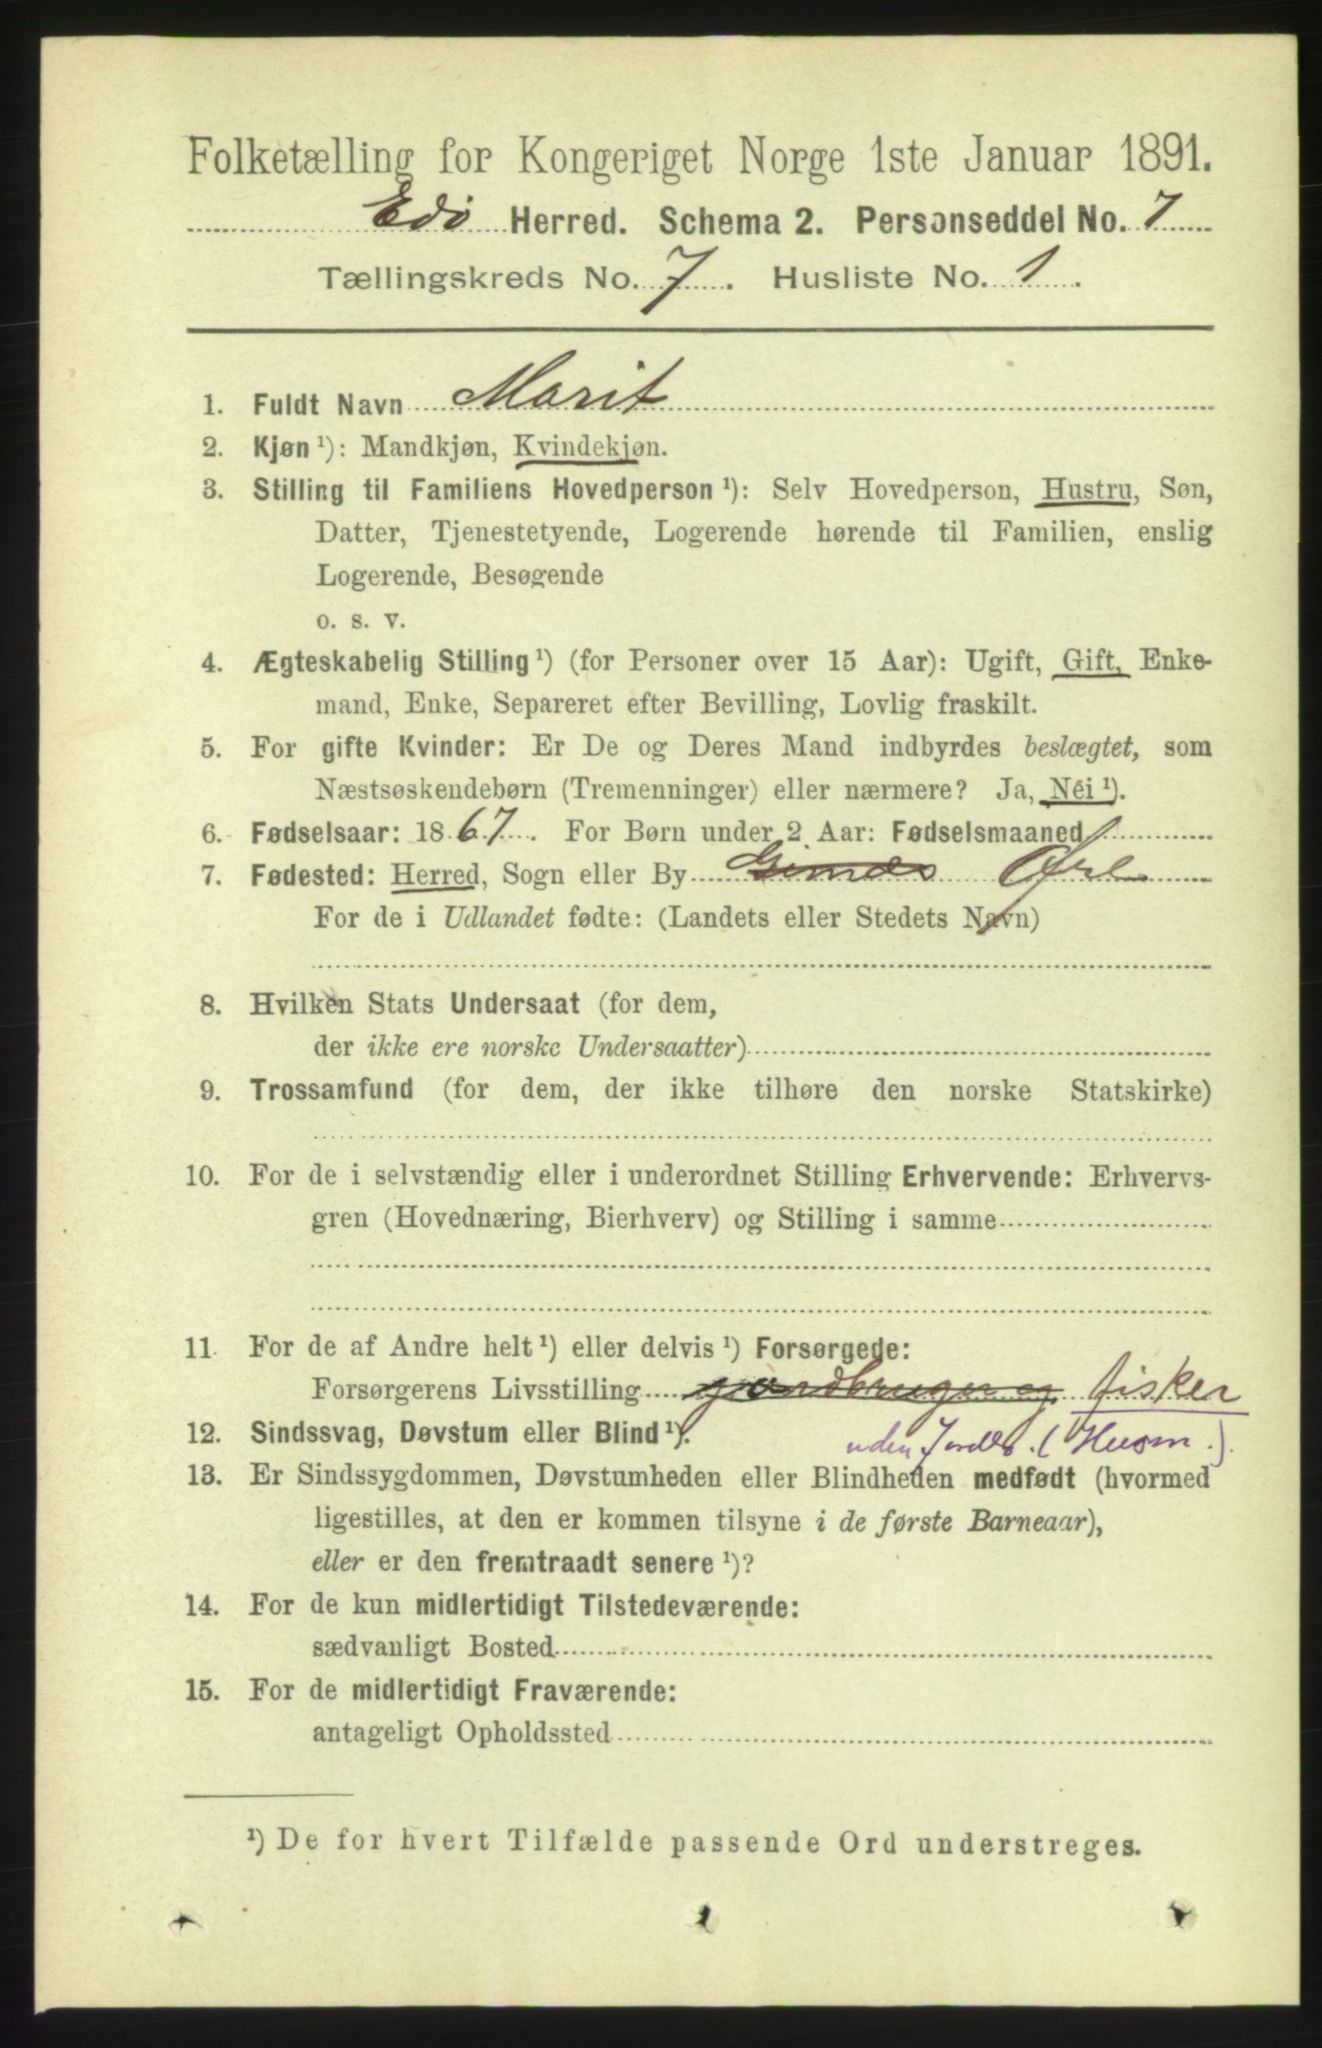 Folketælling for Kongeriget Norge 1ste Januar 1891.
Edö Herred. Schema 2. Personseddel No. 7
Tællingskreds No. 7. Husliste No. 1.
1. Fuldt Navn Marit
2. Kjøn ¹): Mandkjøn, Kvindekjøn.
3. Stilling til Familiens Hovedperson ¹): Selv Hovedperson, Hustru, Søn,
Datter, Tjenestetyende, Logerende hørende til Familien, enslig
Logerende, Besøgende
o. s. v.
4. Ægteskabelig Stilling ¹) (for Personer over 15 Aar): Ugift, Gift, Enke-
mand, Enke, Separeret efter Bevilling, Lovlig fraskilt.
5. For gifte Kvinder: Er De og Deres Mand indbyrdes beslægtet, som
Næstsøskendebørn (Tremenninger) eller nærmere? Ja, Nei ¹).
6. Fødselsaar: 1867. For Børn under 2 Aar: Fødselsmaaned
7. Fødested: Herred, Sogn eller By Gimæs Øre
For de i Udlandet fødte: (Landets eller Stedets Navn)
8. Hvilken Stats Undersaat (for dem,
der ikke ere norske Undersaatter)
9. Trossamfund (for dem, der ikke tilhøre den norske Statskirke)
10. For de i selvstændig eller i underordnet Stilling Erhvervende: Erhvervs-
gren (Hovednæring, Bierhverv) og Stilling i samme
11. For de af Andre helt ¹) eller delvis ¹) Forsørgede:
Forsørgerens Livsstilling gaardbruger og fisker
12. Sindssvag, Døvstum eller Blind ¹). uden Jordb. (Husm.).
13. Er Sindssygdommen, Døvstumheden eller Blindheden medfødt (hvormed
ligestilles, at den er kommen tilsyne i de første Barneaar),
eller er den fremtraadt senere ¹)?
14. For de kun midlertidigt Tilstedeværende:
sædvanligt Bosted
15. For de midlertidigt Fraværende:
antageligt Opholdssted
¹) De for hvert Tilfælde passende Ord understreges.